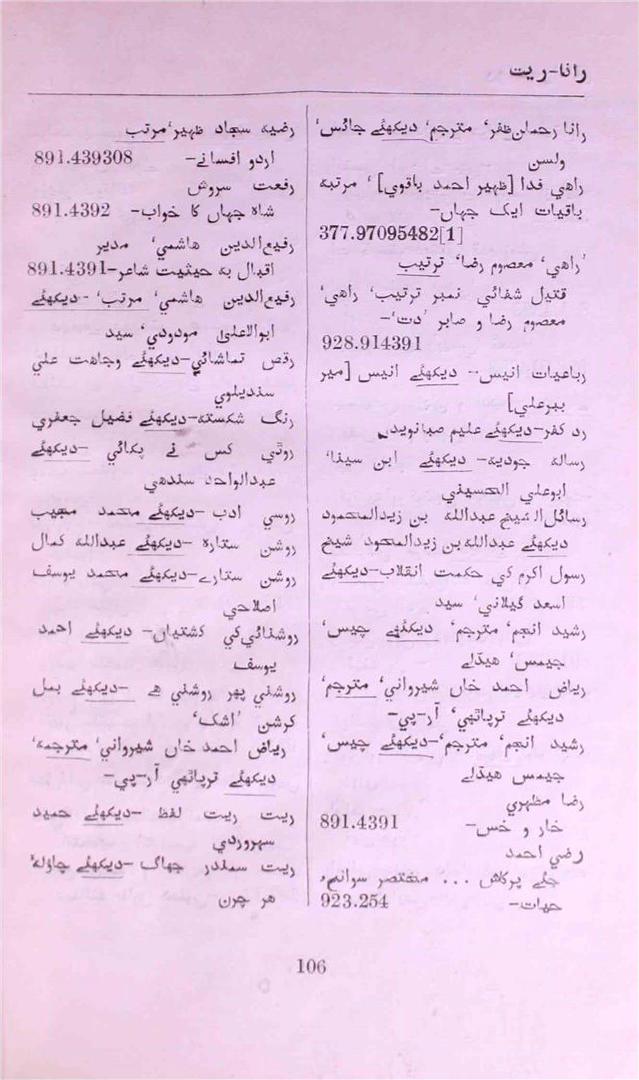 رانا-ریت
رانا رحمان ظفر، مترجم، دیکھئے جانس،
ولسن
راهي فدا [ظہیر احمد باقوي] ، مرتبہ
باقیات ایک جہاں-
377.97095482[1]
'راهي، معصوم رضا، ترتیب
قتیل شفائي نمبر ترتیب، راهي،
معصوم رضا و صابر 'دت،-
928.914391
رباعیات انیس- دیکھئے انیس [میر
ببرعلي]
رد کفر-دیکھئے علیم صبا نویدی
رسالہ جودیہ- دیکھئے ابن سینا،
ابوعلي الحسیني
رسائل الشیخ عبداللہ بن زیدالمحمود
دیکھئے عبداللہ بن زیدالمحمود شیخ
رسول اکرم کي حکمت انقلاب-دیکھئے
اسعد گیلاني، سید
رشید انجم، مترجم، دیکھئے چیس،
جیمس، هیڈلے
ریاض احمد خاں شیرواني، مترجم،
دیکھئے ترپاٹھي، آر-پي-
رشید انجم، مترجم،-دیکھئے چیس،
جیمس هیڈلے
رضا مظہري
خار و خس- 891.4391
رضي احمد
جئے پرکاش ... مختصر سوانح
حیات- 923.254
رضیہ سجاد ظہیر، مرتب
اردو افسانے- 891.439308
رفعت سروش
شاہ جہاں کا خواب- 891.4392
رفیع الدین هاشمي، مدیر
اقبال بہ حیثیت شاعر-891.4391
رفیع الدین هاشمي، مرتب، -دیکھئے
ابوالاعلیٰ مودودي، سید
رقص تماشائي-دیکھئے وجاهت علي
سندیلوي
رنگ شکستہ-دیکھئے فضیل جعفري
روٹي کس نے پکائي -دیکھئے
عبدالواحد سندھي
روسي ادب -دیکھئے محمد مجیب
روشن ستارہ -دیکھئے عبداللہ کمال
روشن ستارے-دیکھئے محمد یوسف
اصلاحي
روشنائي کي کشتیاں- دیکھئے احمد
یوسف
روشني پھر روشني هے -دیکھئے بمل
کرشن 'اشک،
ریاض احمد خاں شیرواني، مترجمہ،
دیکھئے ترپاٹھي آر-پي-
ریت ریت لفظ -دیکھئے حمید
سہروردي
ریت سمندر جھاگ -دیکھئے چاولہ،
هر چرن
106